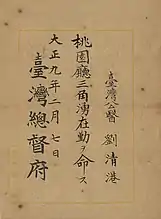 臺灣公醫 劉清港
桃園廳三角湧在勤ヲ命ス
大正九年二月七日
臺灣總督府